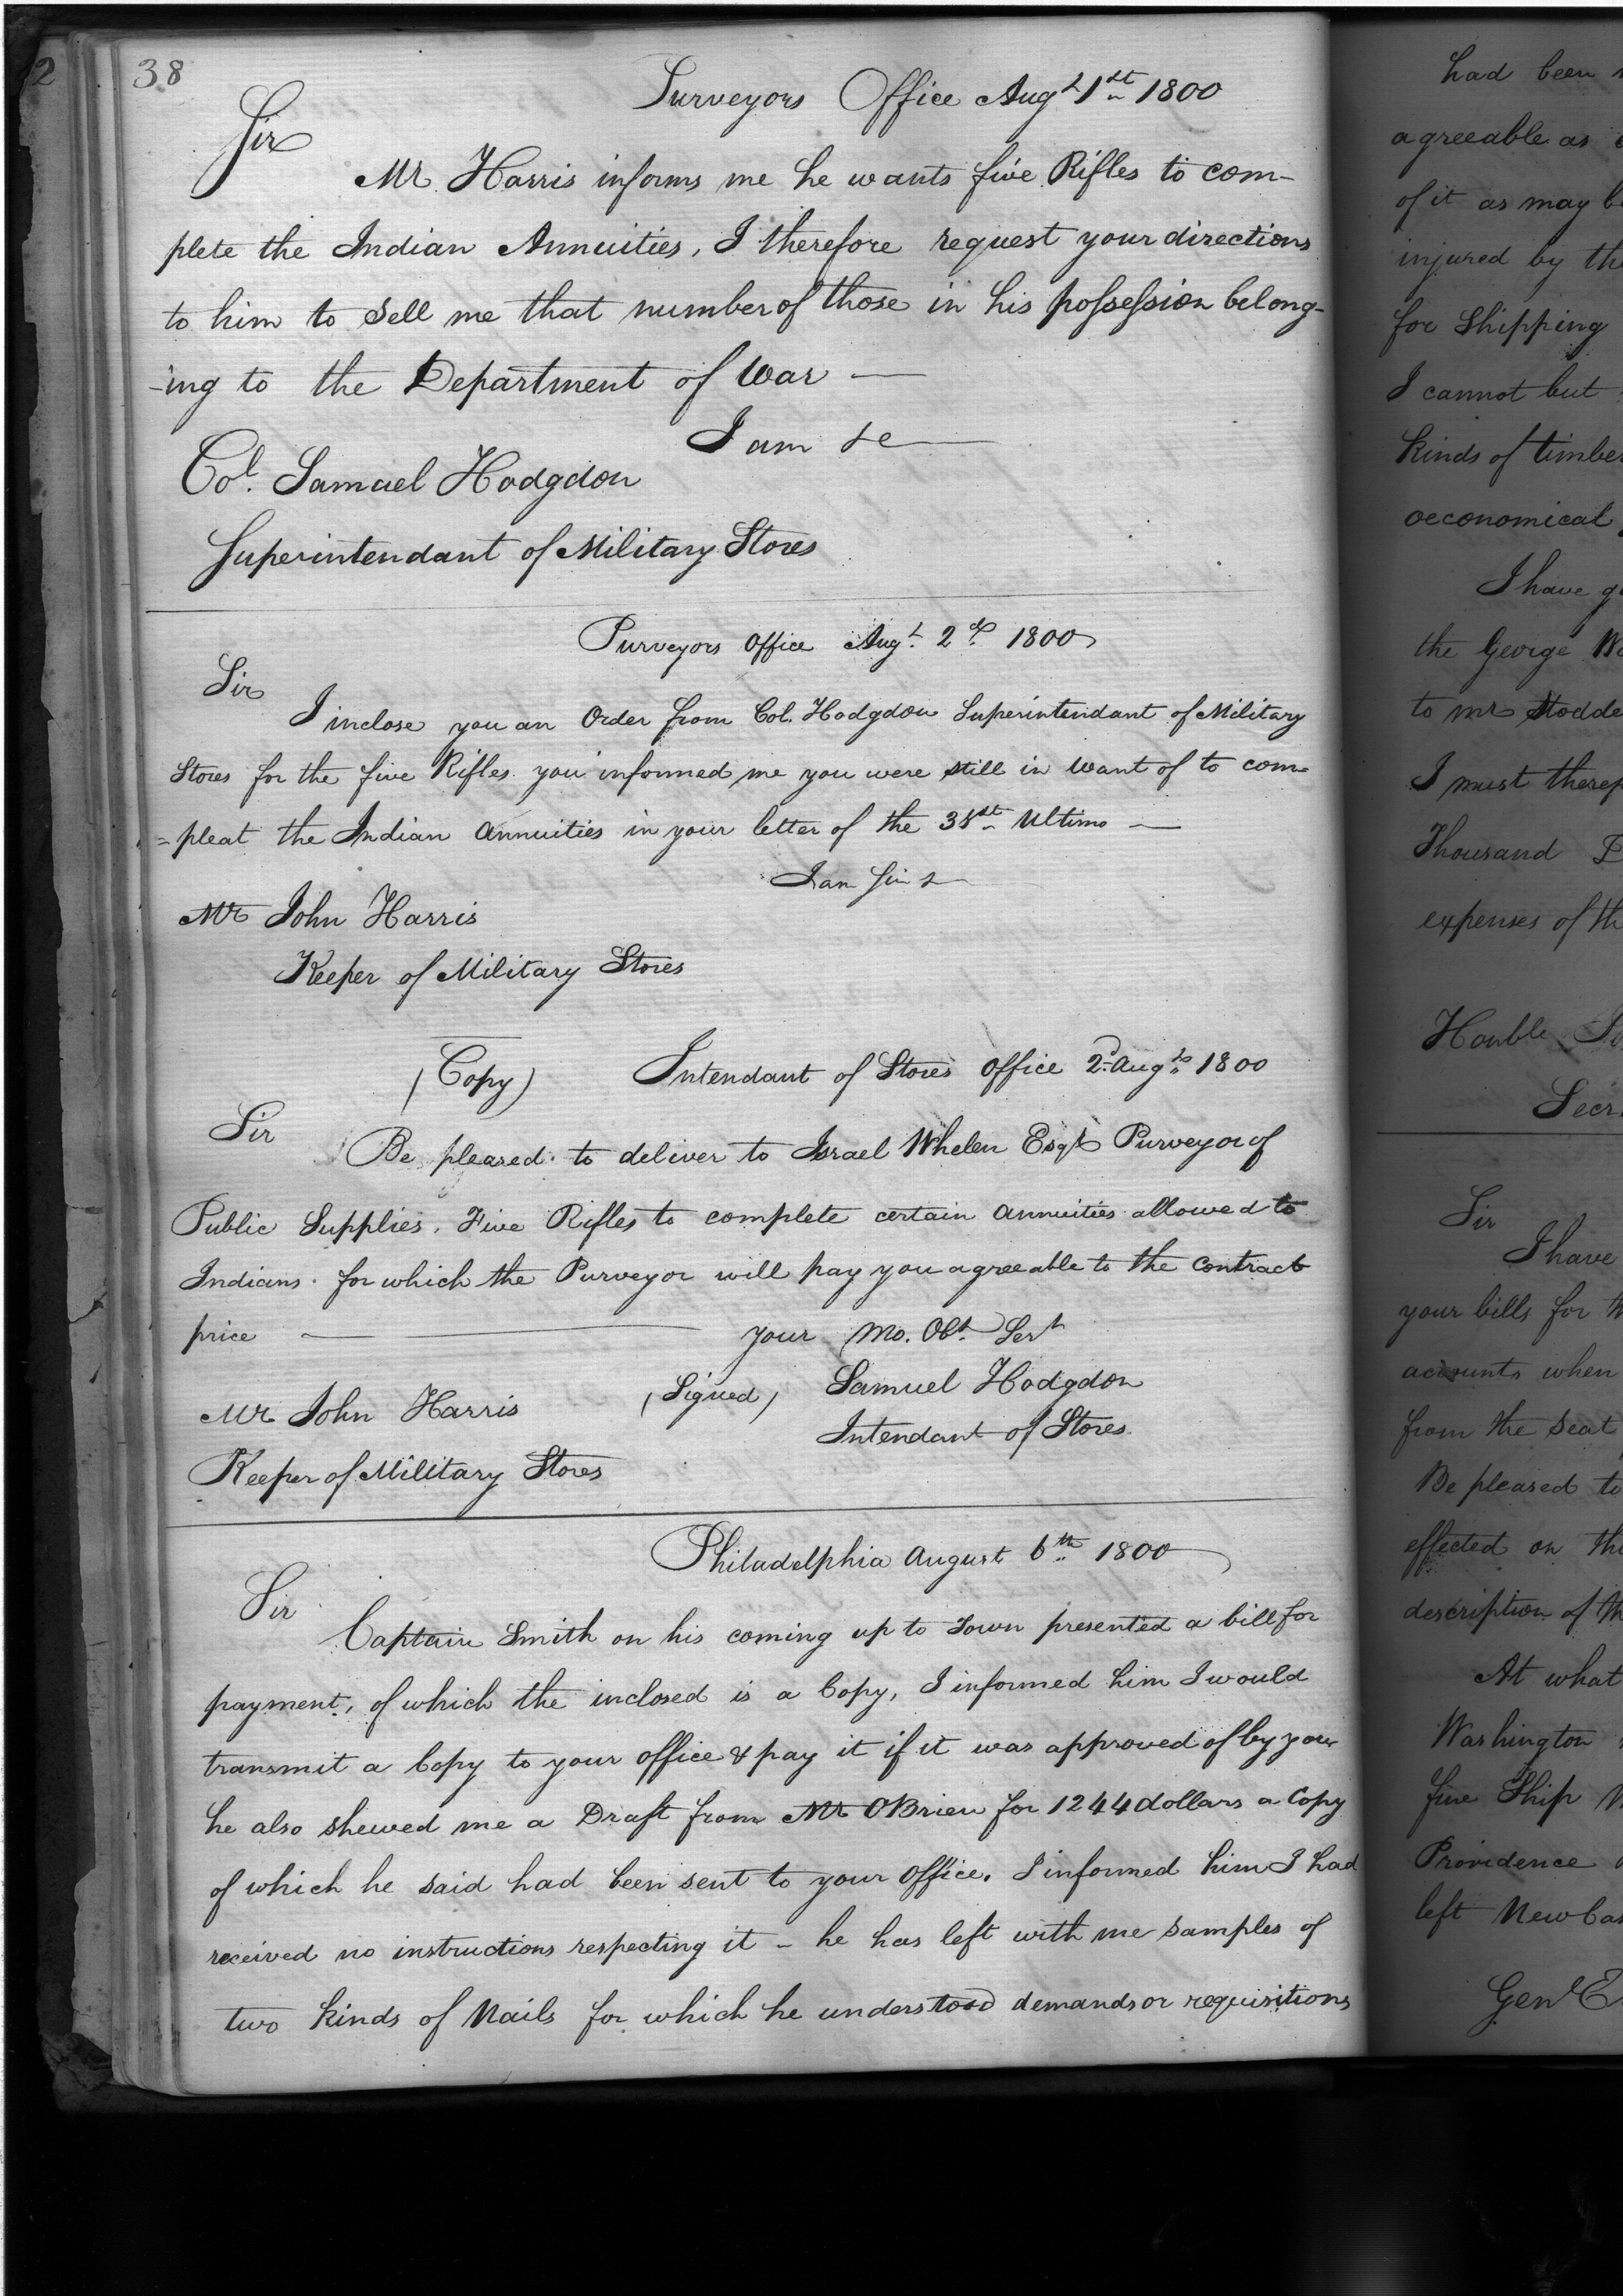 38
Surveyors Office Augt 1st 1800
Sir
Mr Harris informs me he wants five Rifles to com-
plete the Indian Annuities, I therefore request your directions
to him to Sell me that number of those in his possession belong-
-ing to the Department of War —
I am &c
Col. Samuel Hodgdon
Superintendant of Military Stores
Purveyors Office Augt 2d 1800
Sir
I inclose you an Order from Col. Hodgdon Superintendant of Military
Stores for the five Rifles you informed me you were still in want of to com=
=pleat the Indian Annuities in your letter of the 31st Ultimo —
I am Sir &
Mr John Harris
Keeper of Military Stores
(Copy) Intendant of Stores Office 2d Augt 1800
Sir
Be pleased to deliver to Israel Whelen Esqr Purveyor of
Public Supplies, Five Rifles to complete certain Annuities allowed to
Indians. for which the Purveyor will pay you agreeable to the Contract
price — your Mo. Obt Sert
(Signed) Samuel Hodgdon
Mr John Harris
Intendant of Stores.
Keeper of Military Stores
Philadelphia August 6th 1800
Sir
Captain Smith on his coming up to Town presented a bill for
payment, of which the inclosed is a Copy, I informed him I would
transmit a Copy to your office & pay it if it was approved of by you
he also shewed me a Draft from Mr OBrien for 1244 dollars a Copy
of which he said had been sent to your Office. I informed him I had
received no instructions respecting it – he has left with me samples of
two kinds of Nails for which he understood demands or requisitions
had been
agreeable as
of it as may
injured by the
for Shipping
I cannot but
kinds of timber
oeconomical
I have
the George
to Mr Stodde
I must theref
Thousand
expenses of th
Honble
Secr
Sir
I have
your bills for
accounts when
from the seat
Be pleased to
effected on the
description of th
At what
Washington
fine Ship
Providence
left New Cas
Genl E